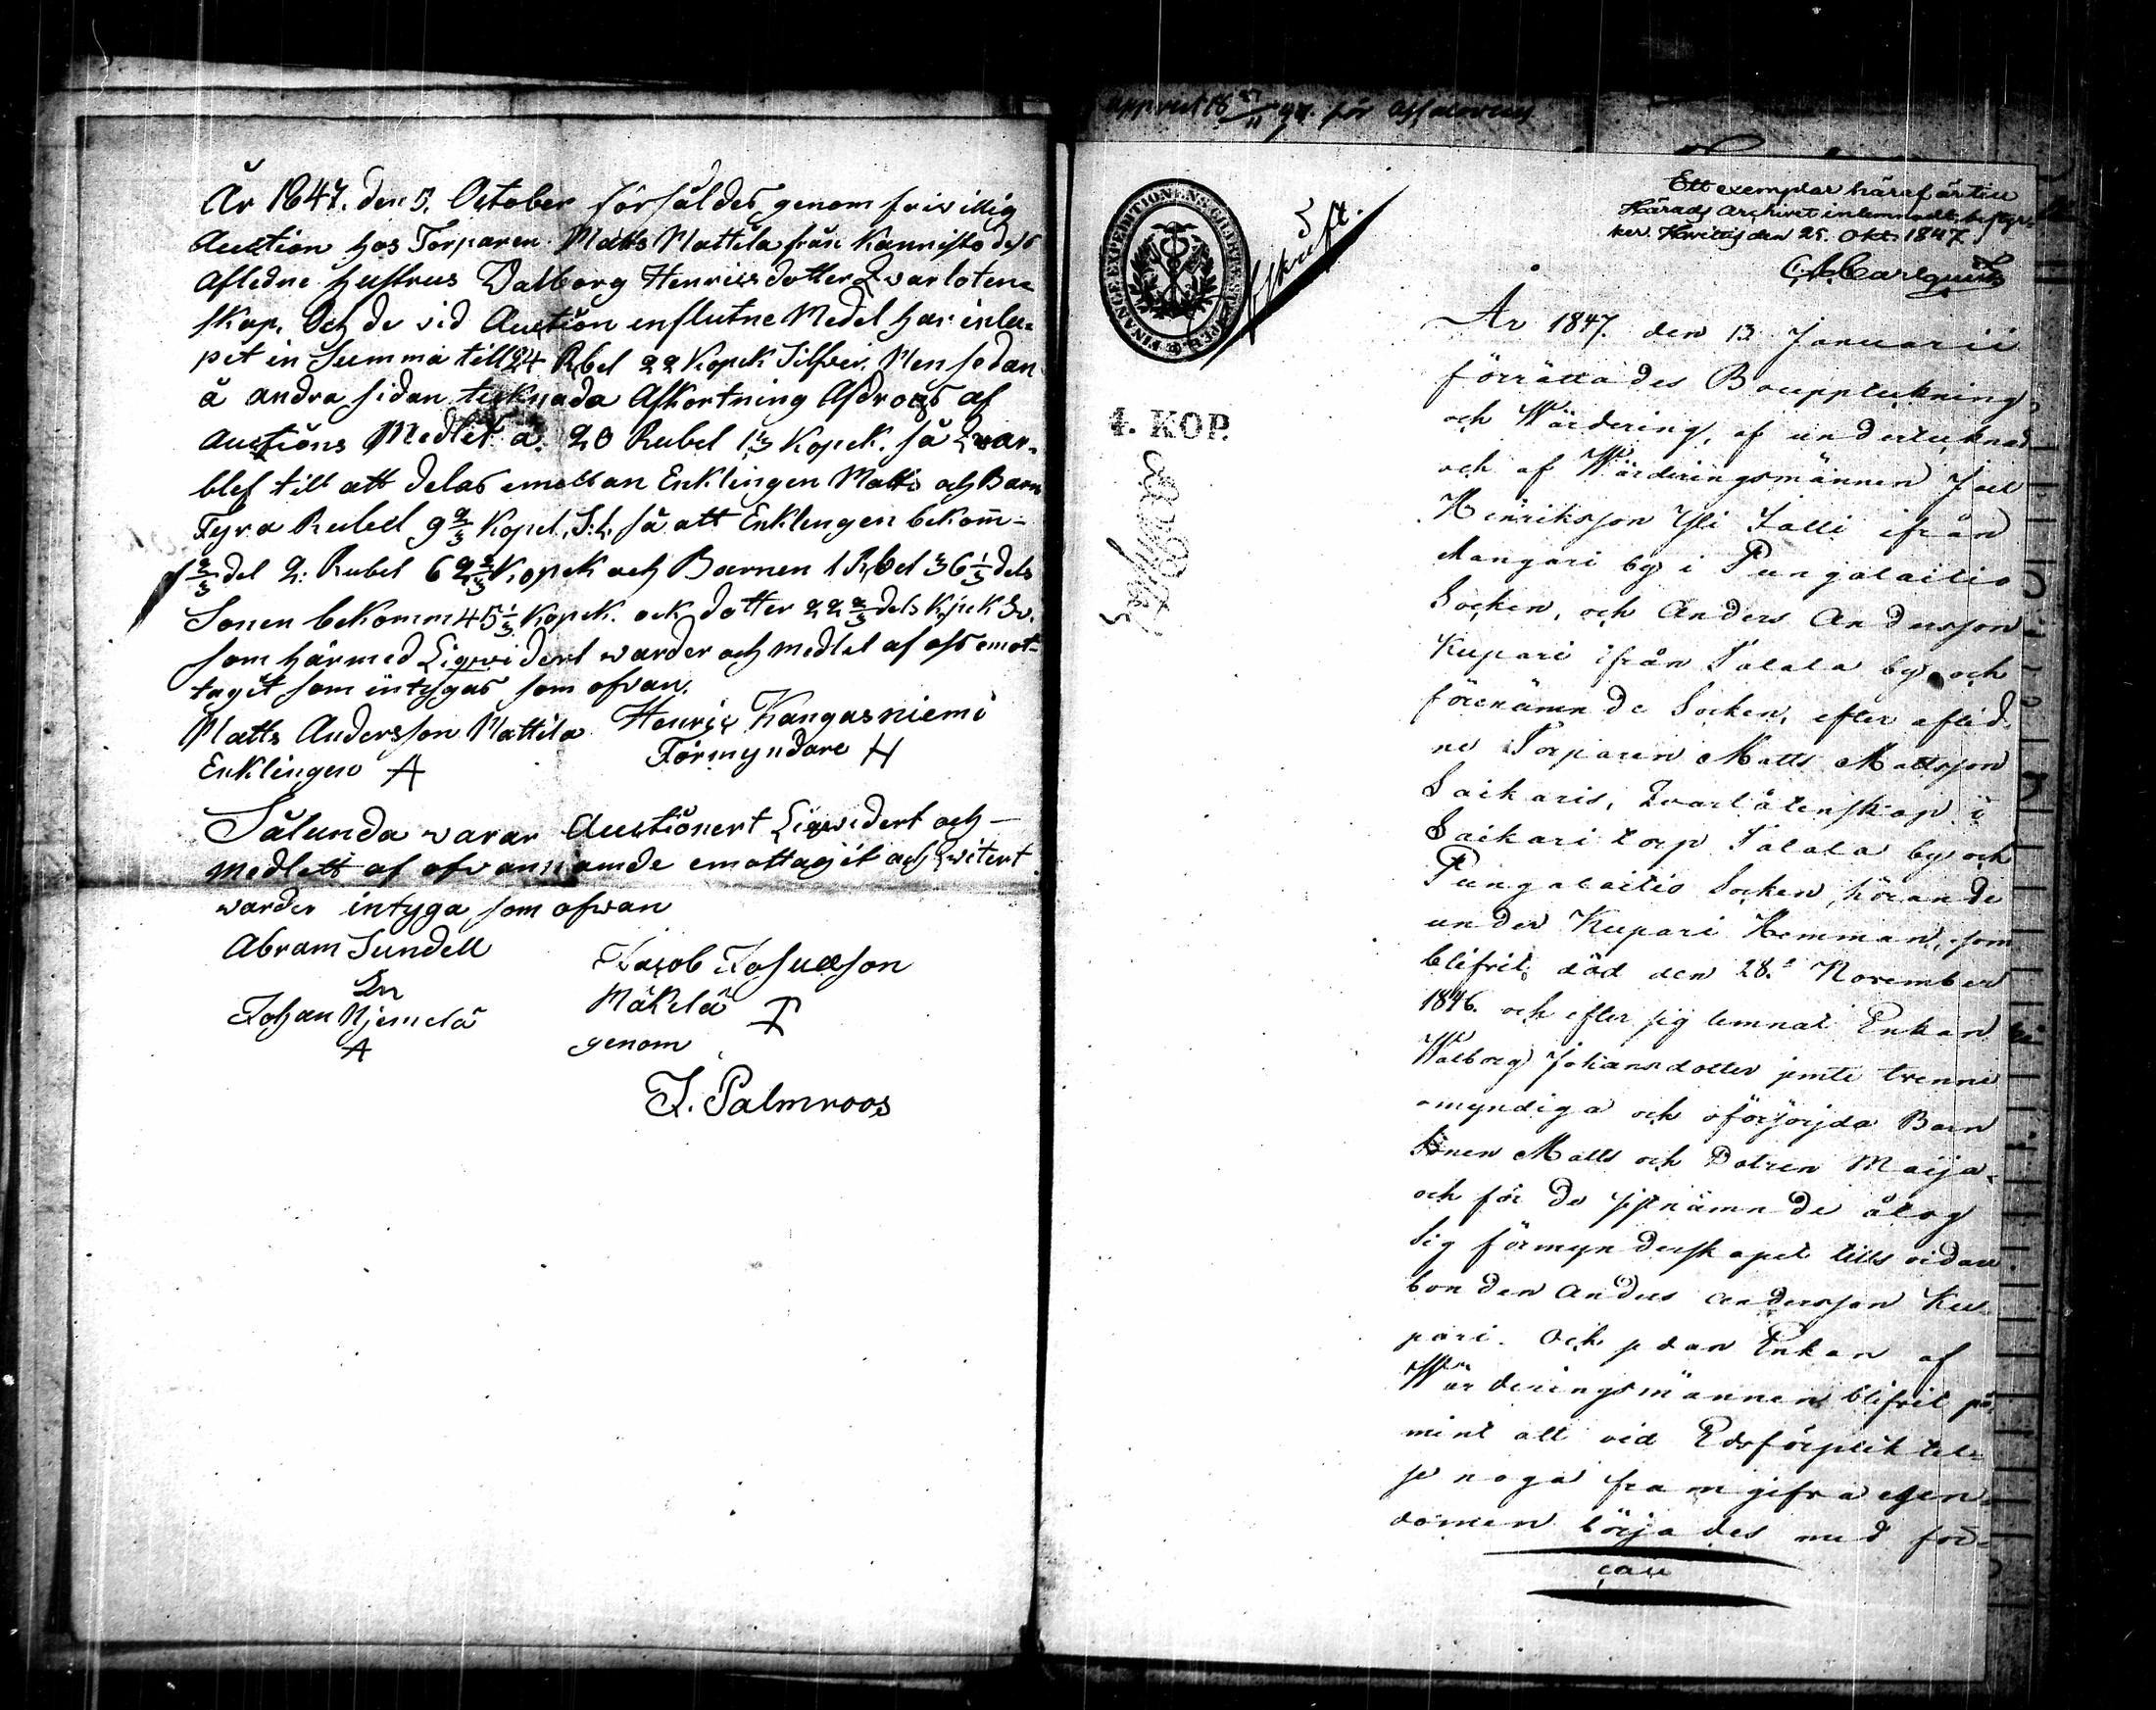 År 1847. den 5. October försåldes genom friwillig
Auction hos Torparen Matts Mattila från Kannisto dess
Afledne hustrus Walborg Henricsdotter Qwarloten-
skap. Och de vid Auction influtne Medel har inlu-
pit in Summa till 24 Rbel 22 Kopek Silfver. Men sedan
å andra sidan tecknada Afkortning Afdrogs af
Auctions Medlet a. 20 Rubel 13 Kopek. så qwar-
blef till att delas emellan Enklingen Matts och Barn
Fyra Rubel 9 2/3 Kopek S:r, så att Enklingen bekom-
2/3 del 2: Rubel 62 2/3 Kopek och Barnen 1 Rbel 36 1/3 dels
Sonen bekomm 45 1/3 Kopek. ock dotter 22 2/3 dels Kopek Sv.
som härmed Liqwidert warder och medlet af oss emot-
tagit som intygas som ofvan.
Matts Andersson Mattila Henric Kangasniemi
Enklingen Förmyndare H
Sålunda warar Auctionert Liqwidert och
medlett af ofvannamde emottagit och qwitert
warder intyga som ofwan
Abram Sundell Jacob Josuasson
Johan Njemelä Mäkelä
genom
J. Palmroos
FINANCE EXPEDITIONENS CHARTÆ STEMPEL
Afskrift.
4. KOP.
Ett exemplar häraf är till
Härads Archivet inlemnadt, betyg-
ker. Hvittis den 25. Okt. 1847
Carlquist
År 1847. den 13 Januarii
förrättades Bouppteckning
och Wärdering, af undertecknad
och af Wärderingsmännen Joel
Henriksson Yli Jalli ifrån
Mangari by i Pungalaitio
Socken, och Anders Andersson
Kupari ifrån Palala by och
förenämnde Socken, efter aflid-
ne Torparen Matts Mattsson
Saikaris, Qvarlåtenskap i
Saikari torp Palala by och
Pungalaitio Socken, hörande
under Kupari Hemman, som
blifvit död den 28. November
1846. och efter sig lemnat Enkan
Walborg Johansdotter jemte trenne
omyndiga och oförsörjda Barn
Sonen Matts och Dotren Maija
och för de sistnämnde åtog
Sig förmynderskapet tills vidare
bonden Anders Andersson Ku-
pari. Och sedan Enkan af
Wärderingsmännen blifvit på-
mint att vid Edsförpliktel-
se noga framgifva egen-
domen börjades med fod-